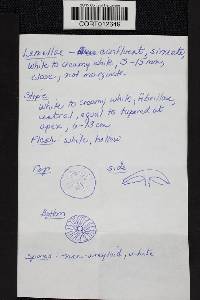 CORT012649
Lamellae - confluent, sinuate,
white to creamy white, 3-15 mm,
close, not marginate.
Stipe
white to creamy white, fibrillose,
central, equal to tapered at
apex, 6-13 cm
Flesh white, hollow
Top side
Bottom
Spores - non-amyloid, white